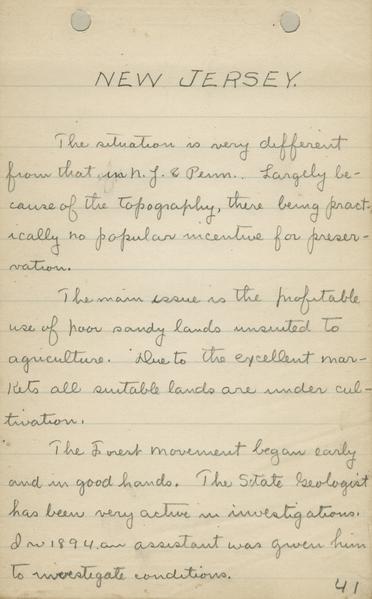 NEW JERSEY.
The situation is very different
from that in N. J. & Penn.. Largely be-
cause of the topography, there being pract-
ically no popular incentive for preser-
vation.
The main issue is the profitable
use of poor sandy lands unsuited to
agriculture. Due to the excellent mar-
kets all suitable lands are under cul-
tivation.
The Forest Movement began early
and in good hands. The State Geologist
has been very active in investigations.
In 1894, an assistant was given him
to investigate conditions.
41